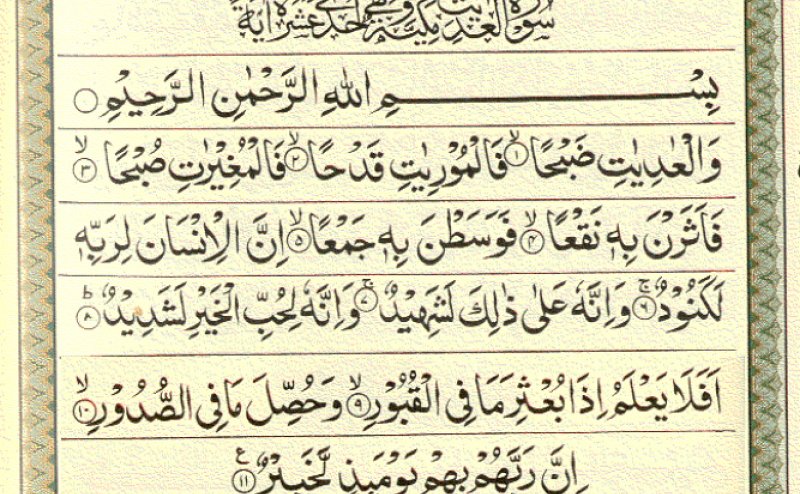 سُوۡرَةُ الۡعٰدِيٰتِ مَكِّيَّةٌ وَّهِىَ اِحۡدٰى عَشۡرَةَ اٰيَةً
بِسۡمِ اللهِ الرَّحۡمٰنِ الرَّحِيۡمِ
وَالۡعٰدِيٰتِ ضَبۡحًا ۙ‏﴿۱﴾ فَالۡمُوۡرِيٰتِ قَدۡحًا ۙ‏﴿۲﴾ فَالۡمُغِيۡرٰتِ صُبۡحًا ۙ‏﴿۳﴾
فَاَثَرۡنَ بِهٖ نَقۡعًا ۙ‏﴿۴﴾ فَوَسَطۡنَ بِهٖ جَمۡعًا ۙ‏﴿۵﴾ اِنَّ الۡاِنۡسَانَ لِرَبِّهٖ
لَـكَنُوۡدٌ ۚ‏﴿۶﴾ وَاِنَّهٗ عَلٰى ذٰلِكَ لَشَهِيۡدٌ ۚ‏﴿۷﴾ وَاِنَّهٗ لِحُبِّ الۡخَيۡرِ لَشَدِيۡدٌ ؕ‏﴿۸﴾
اَفَلَا يَعۡلَمُ اِذَا بُعۡثِرَ مَا فِى الۡقُبُوۡرِ ۙ‏﴿۹﴾ وَحُصِّلَ مَا فِى الصُّدُوۡرِ ۙ‏﴿۱۰﴾
اِنَّ رَبَّهُمۡ بِهِمۡ يَوۡمَٮِٕذٍ لَّخَبِيۡرٌ‏﴿۱۱﴾ ع